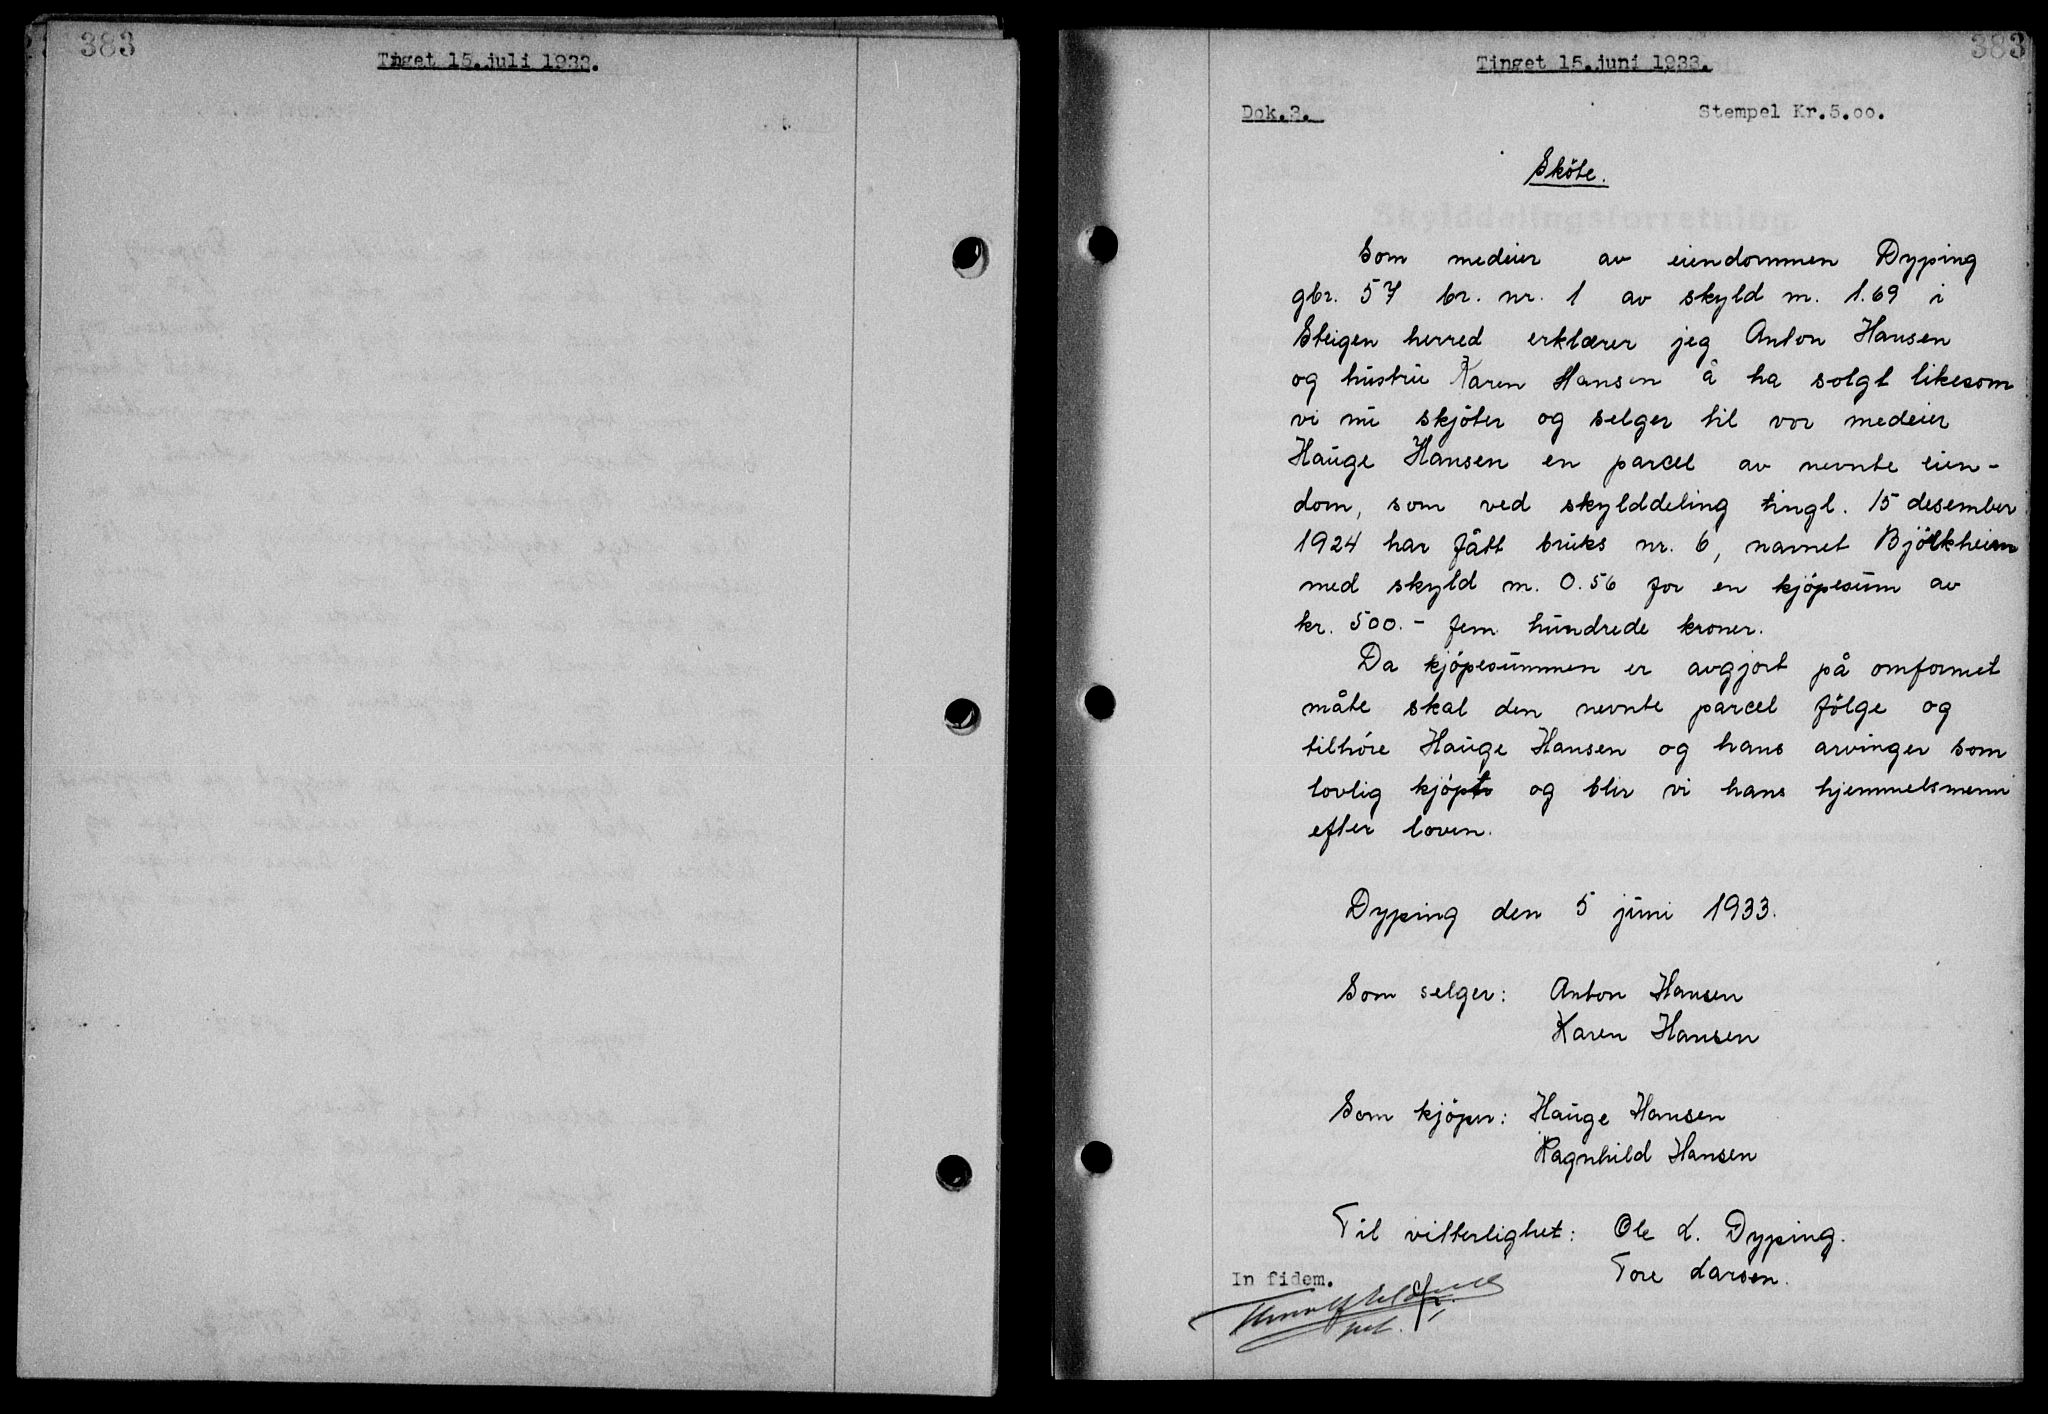 383
Tinget 15.juli 1933.
383
Tinget 15.juni 1933.
Dok.3. Stempel Kr.5.00.
Sköte.
Som medeier av eiendommen Dyping
gbr. 57 br. nr. 1 av skyld m. 1.69 i
Steigen herred erklærer jeg Anton Hansen
og hustru Karen Hansen å ha solgt likesom
vi nu skjöter og selger til vor medeier
Hauge Hansen en parcel av nevnte eien-
dom, som ved skylddeling tingl. 15 desember
1924 har fått bruks nr. 6, navnet Björkheim
med skyld m. 0.56 for en kjöpesum av
kr. 500.- fem hundrede kroner.
Da kjöpesummen er avgjort på omfornet
måte skal den nevnte parcel fölge og
tilhöre Hauge Hansen og hans arvinger som
lovlig kjöpt og blir vi hans hjemmelsmenn
efter loven.
Dyping den 5 juni 1933.
Som selger: Anton Hansen
Karen Hansen
Som kjöper: Hauge Hansen
Ragnhild Hansen
Til vitterlighet: Ole L. Dyping.
Tore Larsen.
In fidem.